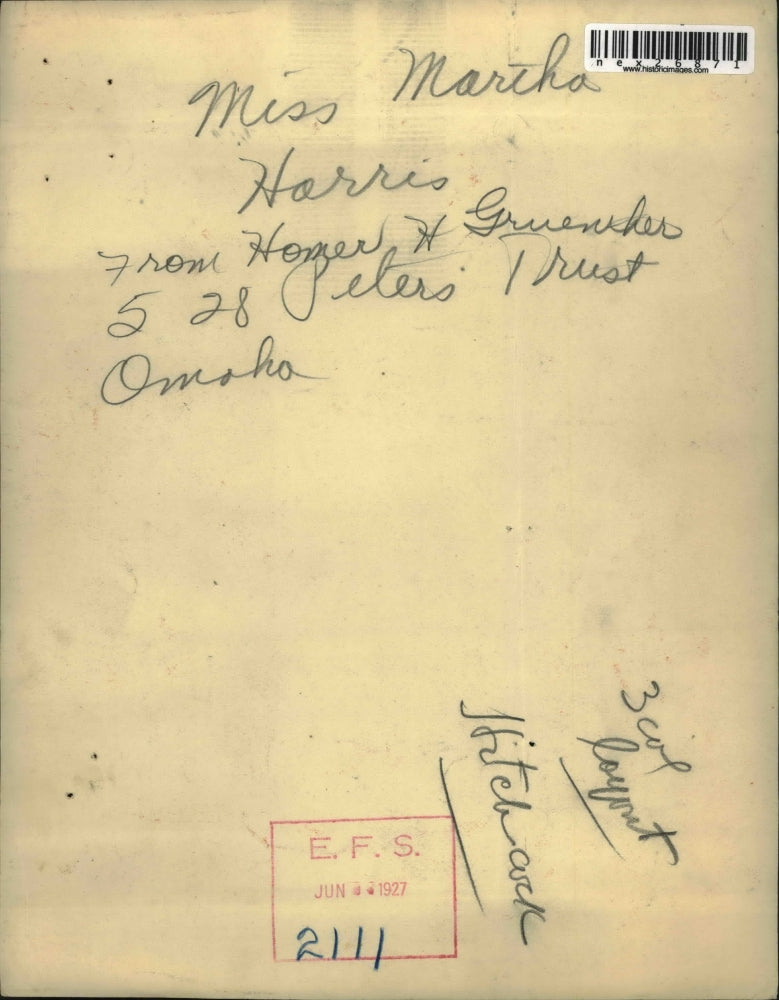 Miss Martha
Harris
From Homer H Gruenther
528 Peters Trust
Omaha
nex26871
www.historicimages.com
3 col
layout
Hitchcock
E. F. S.
JUN 1927
2111